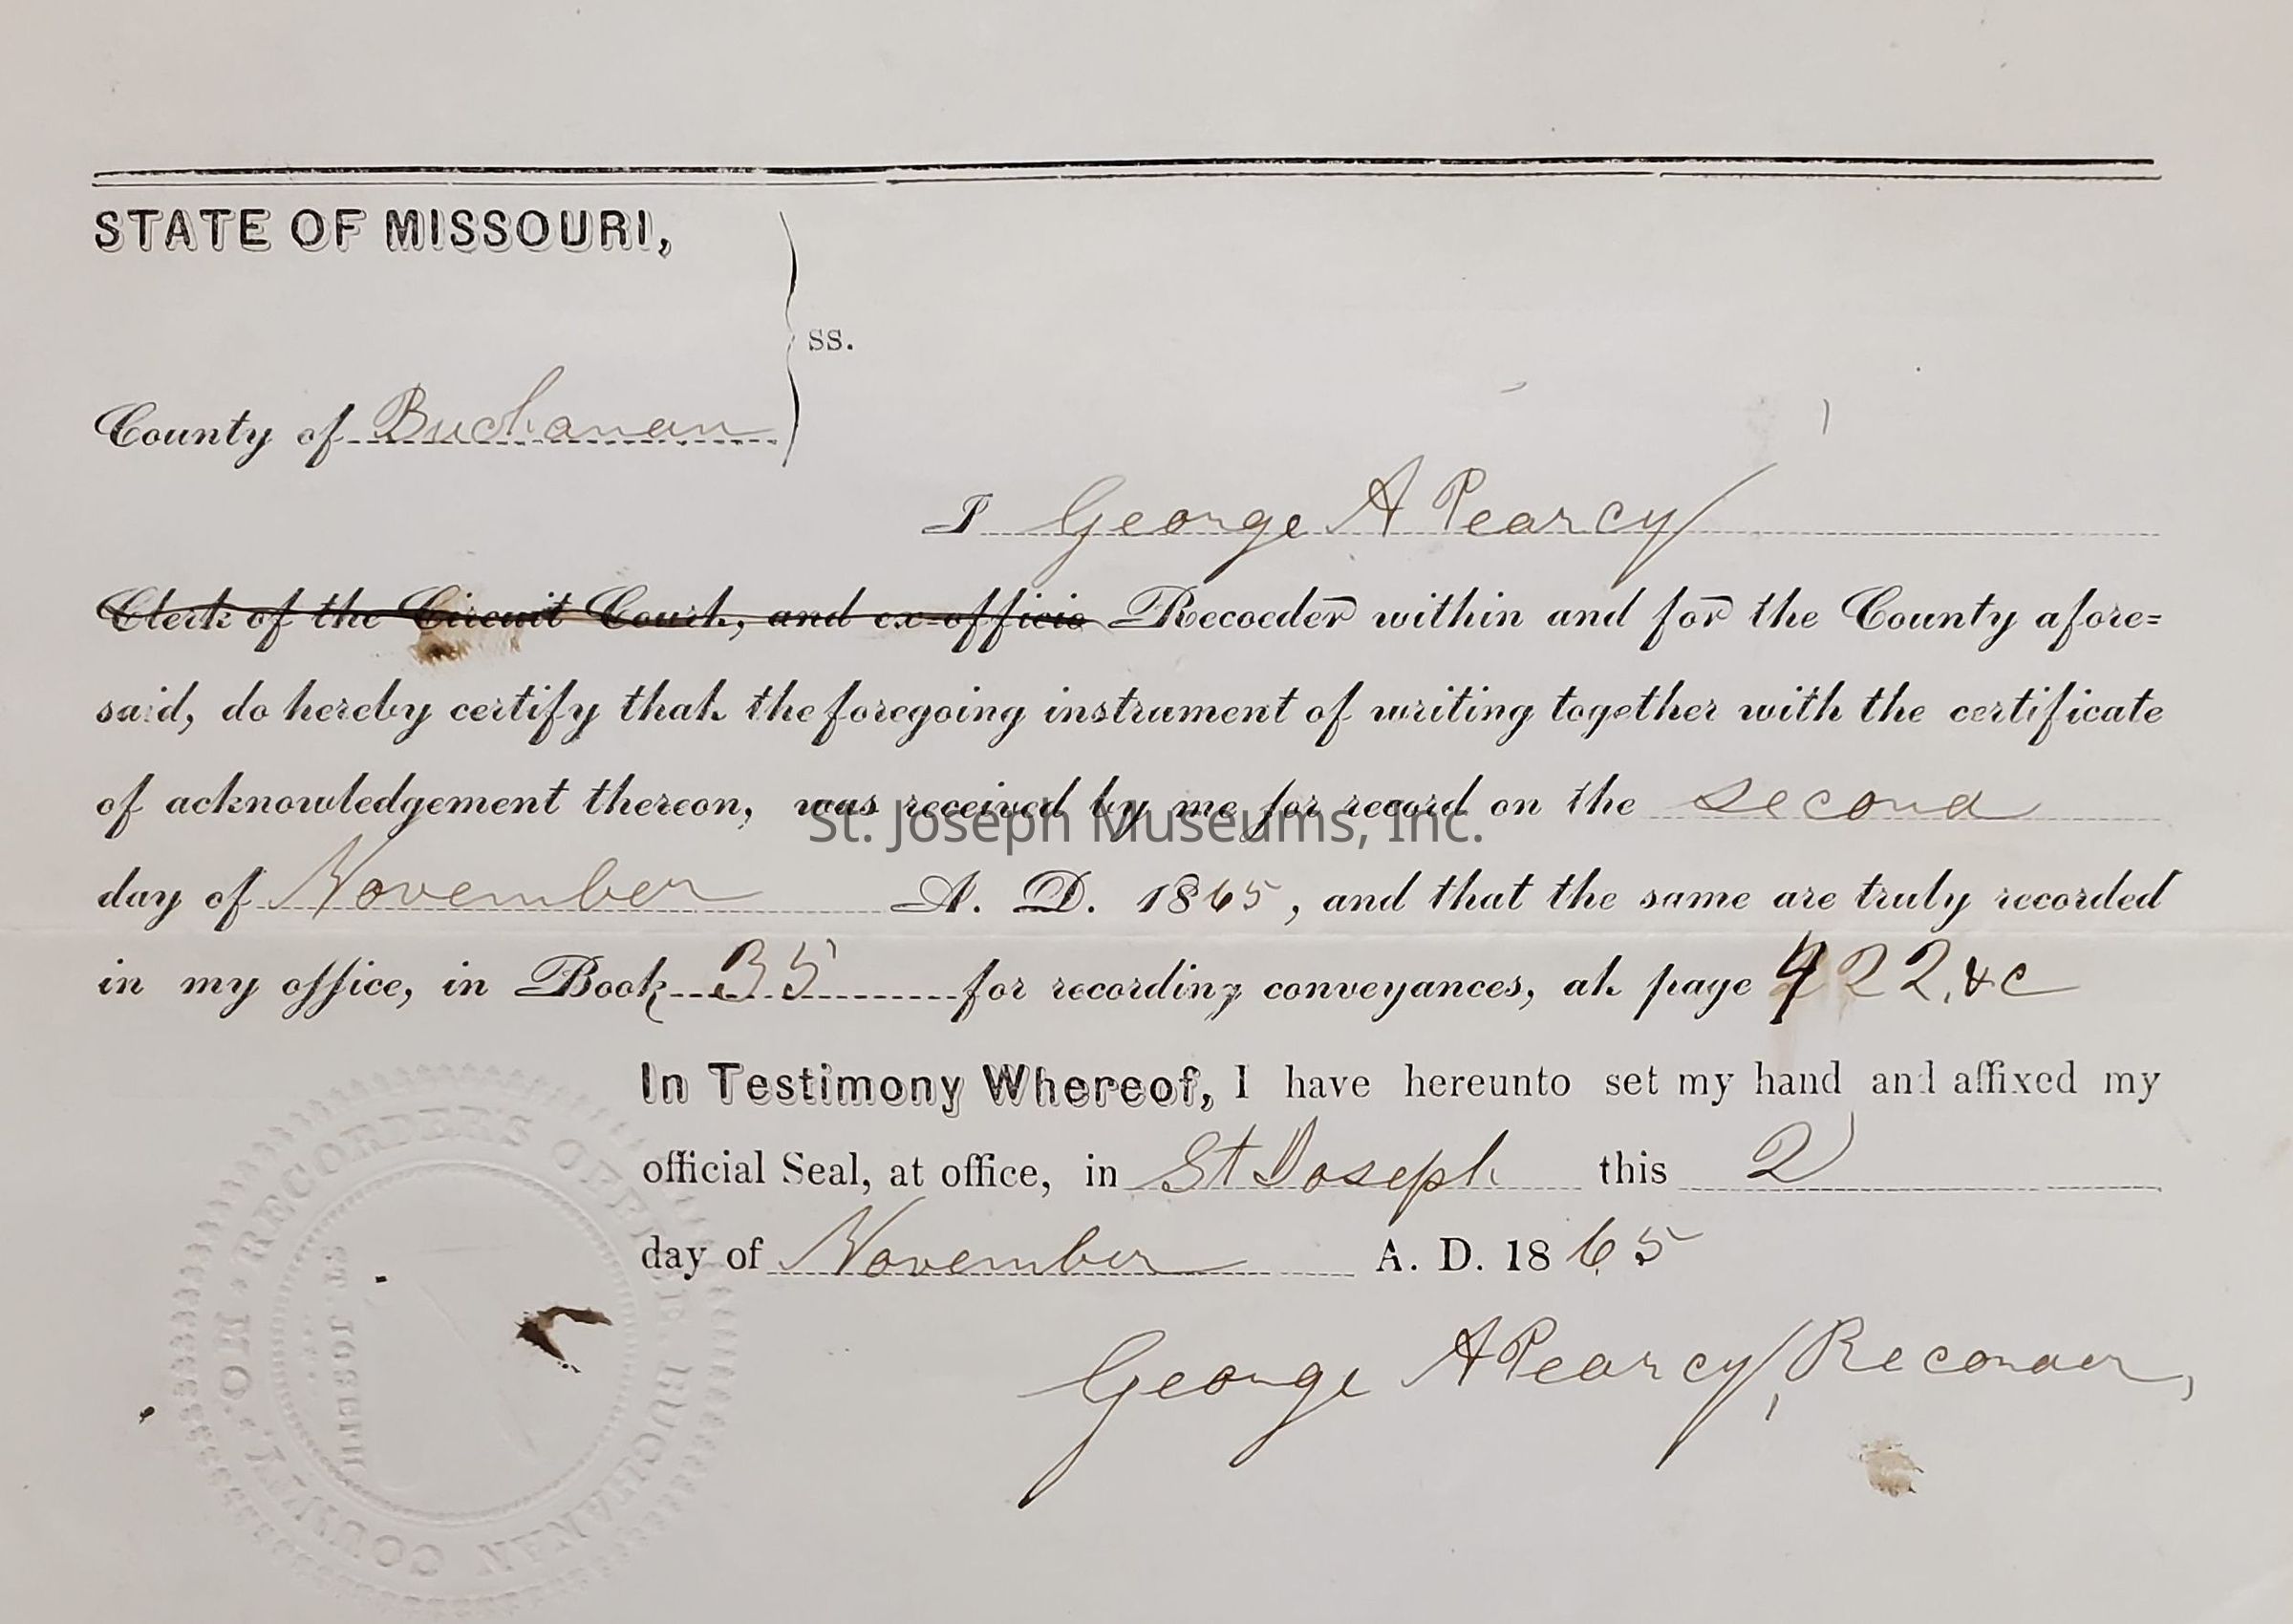 STATE OF MISSOURI,
ss.
County of Buchanan
I George A Pearcy
Clerk of the Circuit Court, and ex-officio Recoeder within and for the County afore=
said, do hereby certify that the foregoing instrument of writing together with the certificate
of acknowledgement thereon, was received by me for record on the second
St. Joseph Museums, Inc.
day of November A. D. 1865, and that the same are truly recorded
in my office, in Book 35 for recording conveyances, at page 422, &c
In Testimony Whereof, I have hereunto set my hand and affixed my
official Seal, at office, in St Joseph this 2
day of November A. D. 1865
George A Pearcy, Recorder,
RECORDER'S OFFICE BUCHANAN COUNTY MO.
ST. JOSEPH